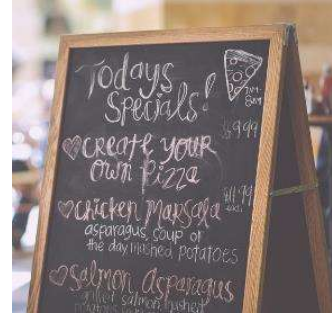 Todays
Specials!
7AM-
8AM
$9.99
♡ Create your
own Pizza
♡ chicken Marsala
asparagus, soup of
the day, mashed potatoes
♡ Salmon Asparagus
grilled salmon, mashed
potatoes